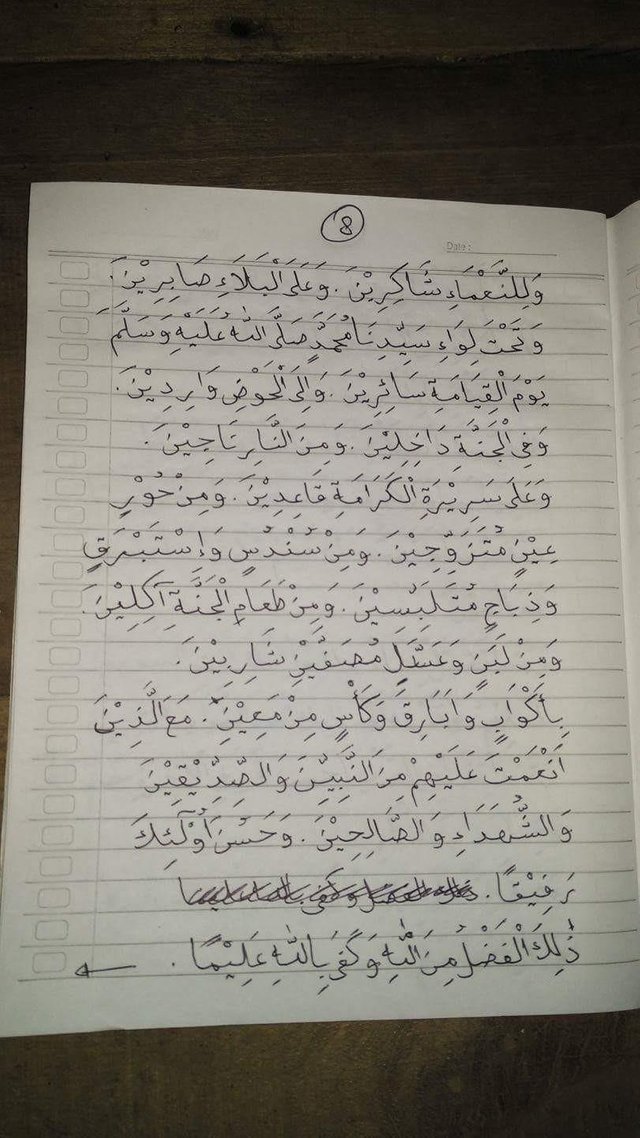 8
Date :
وَلِلنَّعْمَاءِ شَاكِرِيْنَ. وَعَلَى الْبَلَاءِ صَابِرِيْنَ.
وَتَحْتَ لِوَاءِ سَيِّدِنَا مُحَمَّدٍ صَلَّى اللهُ عَلَيْهِ وَسَلَّمَ
يَوْمَ الْقِيَامَةِ سَائِرِيْنَ. وَإِلَى الْحَوْضِ وَارِدِيْنَ.
وَفِى الْجَنَّةِ دَاخِلِيْنَ. وَمِنَ النَّارِ نَاجِيْنَ.
وَعَلَى سَرِيْرَةِ الْكَرَامَةِ قَاعِدِيْنَ. وَمِنْ حُوْرٍ
عِيْنٍ مُتَزَوِّجِيْنَ. وَمِنْ سُنْدُسٍ وَإِسْتَبْرَقٍ
وَذِبَاجٍ مُتَلَبِّسِيْنَ. وَمِنْ طَعَامِ الْجَنَّةِ آكِلِيْنَ.
وَمِنْ لَبَنٍ وَعَسَلٍ مُصَفَّيْنِ شَارِبِيْنَ.
بِأَكْوَابٍ وَاَبَارِقَ وَكَأْسٍ مِنْ مَعِيْنٍ. مَعَ الَّذِيْنَ
اَنْعَمْتَ عَلَيْهِمْ مِنَ النَّبِيِّيْنَ وَالصِّدِّيْقِيْنَ
وَالشُّهَدَاءِ وَالصَّالِحِيْنَ. وَحَسُنَ اُوْلَٓئِكَ
رَفِيْقًا.
ذٰلِكَ الْفَضْلُ مِنَ اللّٰهِ وَكَفَى بِاللّٰهِ عَلِيْمًا.